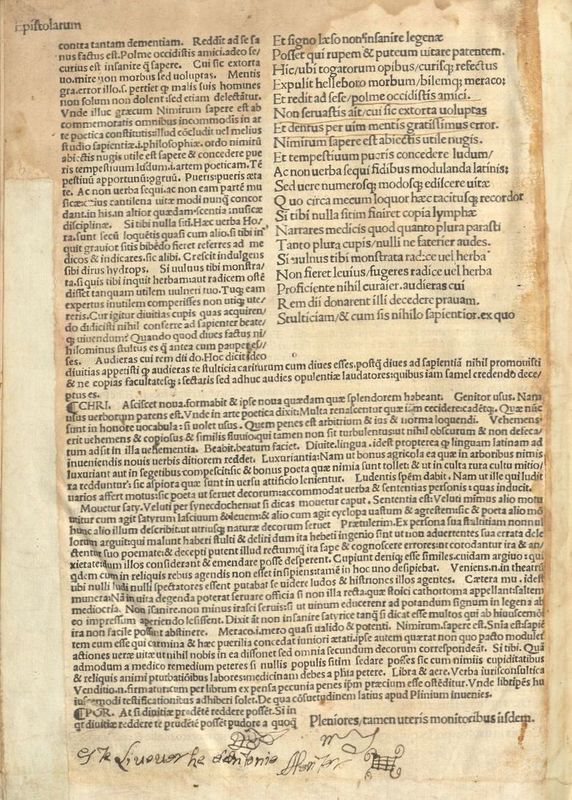 Epistolarum
contra tantam dementiam. Reddit ad se sa
nus factus est. Polme occidistis amici. adeo se/
curius est insanire q̃ sapere. Cui sic extorta
uo. mire non morbus sed uoluptas. Mentis
gra. error illo.s. pertiet q̃ malis suis homines
non solum non dolent sed etiam delectãtur.
Vnde illuc græcum Nimirum sapere est ab
commemoratis omnibus incommodis in ar
te poetica constitutis illud cõcludit uel melius
studio sapientiæ.i.philosophiæ. ordo nimirũ
abiectis nugis utile est sapere & concedere pue
ris tempestiuum lusdum.i.artem poeticam. Tẽ
pestiuũ apportunũ. Pueris pueris æta
te. Ac non uerba sequi. ac non eam partẽ mu
sicæ cuius cantilena uitæ modi nunq̃ concor
dant. in his. in altior quædam scentia musicæ
disciplinæ. Si tibi nulla siti. Hæc uerba Ho/
ra. sunt secũ loquẽtis quasi cum alio. si tibi in
quit grauior sitis bibẽdo fieret referres ad me
dicos & indicares. sic alibi. Crescit indulgens
sibi dirus hydrops. Si uulnus tibi monstra/
ta. si quis tibi inquit herbam aut radicem ostẽ
disset tanquam utilem uulneri tuo. Tuq; eam
expertus inutilem comperisses non utiq; ute/
reris. Cur igitur diuitias cupis quas acquiren/
do didicisti nihil conferre ad sapienter beate/
q; uiuendum? Quando quod diues factus ni/
hilominus stultus es q̃ antea cum pauper es/
ses. Audieras cui rem dii do. Hoc dicit ideo
Et signo læso non insanire legenæ
Posset qui rupem & puteum uitare patentem.
Hic/ubi togatorum opibus/curisq; refectus
Expulit helleboro morbum/bilemq; meraco;
Et redit ad sese/polme occidistis amici.
Non seruastis ait/cui sic extorta uoluptas
Et demtus per uim mentis gratissimus error.
Nimirum sapere est abiectis utile nugis.
Et tempestiuum pueris concedere ludum/
Ac non uerba sequi fidibus modulanda latinis;
Sed ueræ numerosq; modosq; ediscere uitæ
Quo circa mecum loquor hæc tacitusq; recordor
Si tibi nulla sitim finiret copia lymphæ
Narrares medicis quod quanto plura parasti
Tanto plura cupis/nulli ne faterier audes.
Si uulnus tibi monstrata radice uel herba
Non fieret leuius/fugeres radice uel herba
Proficiente nihil curaier. audieras cui
Rem dii donarent illi decedere prauam.
Stulticiam/& cum sis nihilo sapientior. ex quo
diuitias appetisti q̃ audieras te stulticia cariturum cum diues esses. postq̃ diues ad sapientiã nihil promouisti
& ne copias facultatesq; sectaris sed adhuc audies opulentiæ laudatores: quibus iam samel credendo dece/
ptus es.
¶CHRI. Asciscet noua. formabit & ipse noua quædam quæ splendorem habeant. Genitor usus. Nam
usus uerborum parens est. Vnde in arte poetica dixit: Multa renascentur quæ iam cecidere: cadẽtq;. Quæ nũc
sunt in honore uocabula: si uolet usus. Quem penes est arbitrium & ius & norma loquendi. Vehemens.
erit uehemens & copiosus & similis fluuio: qui tamen non sit turbulentus: ut nihil obscurum & non delica/
tum adsit in illa uehementia. Beabit. beatum faciet. Diuite. lingua. idest propterea q̃ linguam latinam ad
inueniendis nouis uerbis ditiorem reddet. Luxuriantia: Nam ut bonus agricola ea quæ in arboribus nimis
luxuriant aut in segetibus compescit: sic & bonus poeta quæ nimia sunt tollet & ut in cultu rura cultu mitio/
ra redduntur: sic aspiora quæ sunt in uersu attificio lenientur. Ludentis spẽm dabit. Nam ut ille qui ludit
uarios affert motus: sic poeta ut seruet decorum: accommodat uerba & sententias personis: quas inducit.
Mouetur saty. Veluti per synecdochen: ut si dicas mouetur caput. Sententia est: Veluti mimus alio motu
utitur cum agit satyrum lasciuum & leuem: & alio cum agit cyclopa uastum & agrestem: sic & poeta alio mõ
hunc alio illum describit. ut utriusq; naturæ decorum seruet Prætulerim. Ex persona sua stultitiam nonnul
lorum arguit: qui malunt haberi stulti & deliri dum ita hebeti ingenio sint ut non aduertentes sua errata dele
ctentur suo poemate: & decepti putent illud rectum: q̃ ita sape & cognoscere errores: ut eos dantur ira & an/
xietate: dum illos considerant & emendare posse desperent. Cupiunt deniq; esse similes. cuidam argiuo: qui
qdem cum in reliquis rebus agendis non esset insipiens: tamẽ in hoc uno desipiebat. Veniens. n. in theatrũ
ubi nulli ludi nulli spectatores essent putabat se uidere ludos & histriones illos agentes. Cætera mu. idest
munera: Nã in uita degenda poterat seruare officia si non illa recta: quæ stoici cathortoma appellant: saltem
mediocria. Non isanire. non minus irasci seruis: si ut uinum educerent ad potandum signum in legena ab
eo impressum aperiendo lesissent. Dixit aũt non insanire saty rice tanq̃ si dicat esse multos qui ab huiuscemõi
ira non facile possunt abstinere. Meraco.i.mero quasi ualido & potenti. Nimirum. sapere est. Snia est: sapiẽ
tem eum esse qui carmina & hæc puerilia concedat iuniori ætati. ipse autem quærat non quo pacto modulet
actiones ueræ uitæ: ut nihil nobis in ea dissonet sed omnia secundum decorum correspondeãt. Si tibi. Quã
admodum a medico remedium peteres si nullis populis sitim sedare posses: sic cum nimiis cupiditatibus
& reliquis animi pturbatiõibus labores: medicinam debes a phia petere. Libra & aere. Verba iurisconsulica
Venditio. n. firmatur: cum per librum ex pensa pecunia penes ipm præcium esse ostẽditur. Vnde libripẽs hu
iuscemodi testificationibus adhiberi solet. De qua cõsuetudinem latius apud Plinium inuenies.
¶POR. At si diuitiæ prudẽtẽ reddere posset. Si in
qt diuitiæ reddere te prudẽtẽ posset pudore a quoq
Pleniores/tamen uteris monitoribus iisdem.